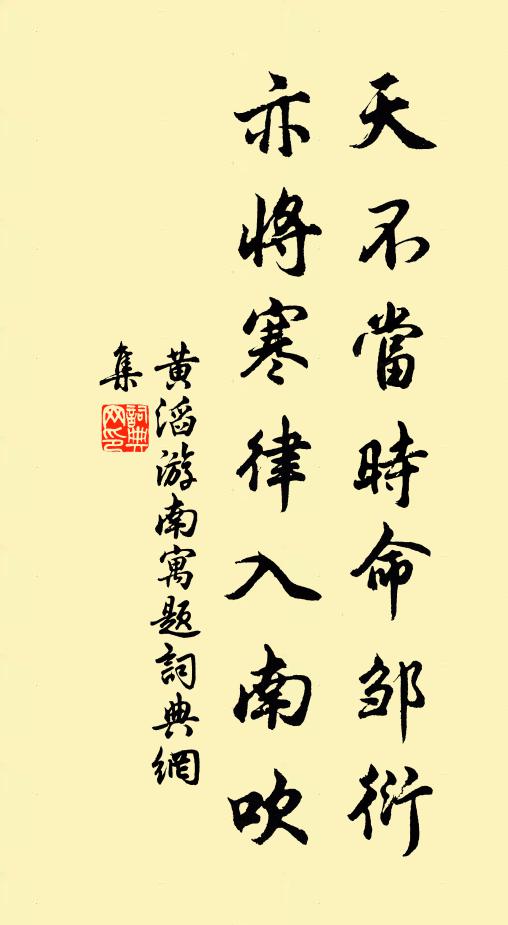 天不當時命邹衍
亦將寒律入南吹
黄滔游南寓题詞典網
集
詞典网印